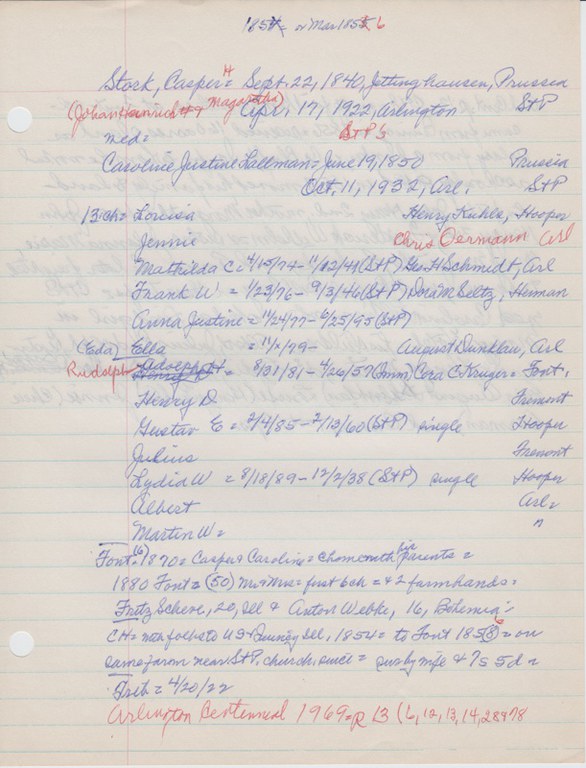 1854 = or Mar 1855 6
Stork, Casper H = Sept. 22, 1840, Jettinghausen, Prussia
(Johan Heinrich Magaretha) Apr. 17, 1922, Arlington StP
med = StP's
Caroline Justine Lallman = June 19, 1850 Prussia
Oct. 11, 1932, Arl. StP
13 ch = Louisa Henry Kuhle, Hooper
Jennie Chris Oermann Arl
Mathilda C = 4/15/74 - 11/02/41 (StP) Geo. H Schmidt, Arl
Frank W = 1/23/76 - 9/3/46 (StP) Dna M Seltz, Herman
Anna Justine = 11/24/77 - 6/25/95 (StP)
(Eda) Ella = 11/2/79 - August Dunklau, Arl
Rudolph Adolpph H = 8/31/81 - 4/26/57 (Imm) Cora C Kruger = Font.
Henry D Fremont
Gustav E = 2/4/85 - 2/13/60 (StP) single Hooper
Julius Fremont
Lydia W = 8/18/89 - 12/2/38 (StP) single Hooper
Albert Arl.
Martin W = "
Font. (6) 1870 = Casper & Caroline = & his parents =
1880 Font = (50) Mr & Mrs = first 6 ch = & 2 farmhands =
Fritz Scheve, 20, Ill & Anton Webke, 16, Bohemia =
CH = folks to US = Ill, 1854 = to Font 1856 = on
same farm near StP. church, since = by wife & 7s 5d =
Trib = 4/20/22
Arlington Centennial 1969 = p 13 (6, 12, 13, 14, 28 & 78